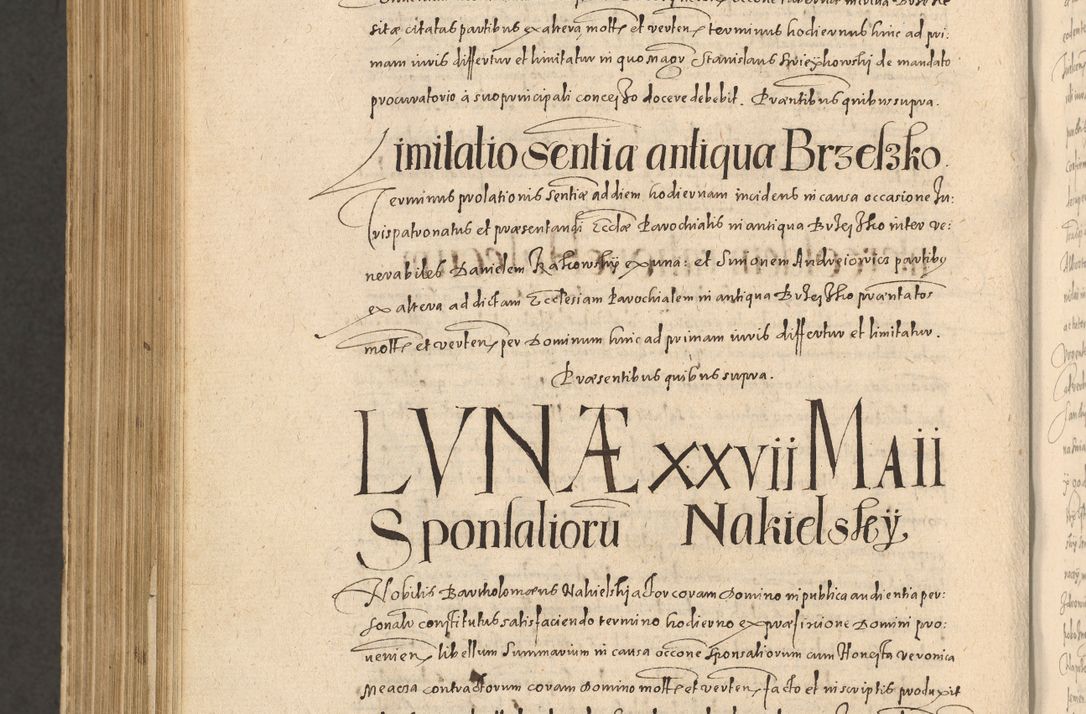 sitæ citatus partibus ex altera mottæ et verten, terminus hodiernus hinc ad pri:
mam iuris differtur et limitatur in quo magr Stanislaus Swieykowski de mandato
procuratorio à suo principali concesso docere debebit. Præntibus quibus supra.
Limitatio Sentia antiqua Brzesko.
Terminus prolationis sentiæ ad diem hodiernam incidens in causa occasione Iu:
ris patronatus et præsentandi Eccłæ Parochialis in antiqua Brzesko inter ve:
nerabiles Danielem Rakowskÿ ex una: et Simonem Andreiovics partibꝫ
ex altera ad dictam Ecclesiam Parochialem in antiqua Brzesko præntatos
mottæ et verten, per Dominum hinc ad primam iuris differtur et limitatur.
Præsentibus quibus supra.
LVNÆ XXVII MAII
Sponsalioru Nakielskÿ
Nobilis Bartholomæus Nakielski actor coram Domino in publica audientia per:
sonalr constitutus satisfaciendo termino hodierno ex præfixione Domini pro:
venien, libellum Summarium in causa occone sponsaliorum cum Honesta Veronica
Meacza contractorum coram Domino mottæ et verten, facto et in scriptis produxit